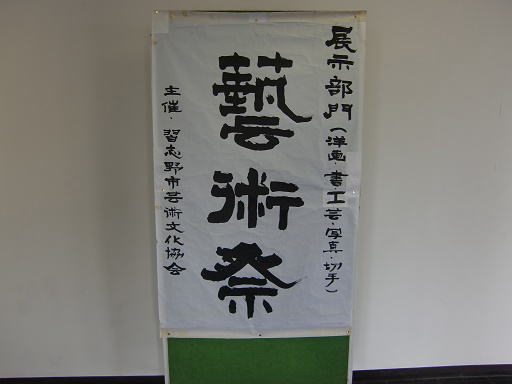 展示部門(洋画・書・工芸・写真・切手)
藝術祭
主催・習志野市芸術文化協会